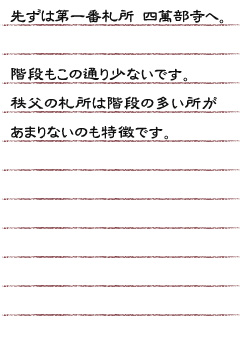 先ずは第一番札所 四萬部寺へ。
階段もこの通り少ないです。
秩父の札所は階段の多い所が
あまりないのも特徴です。